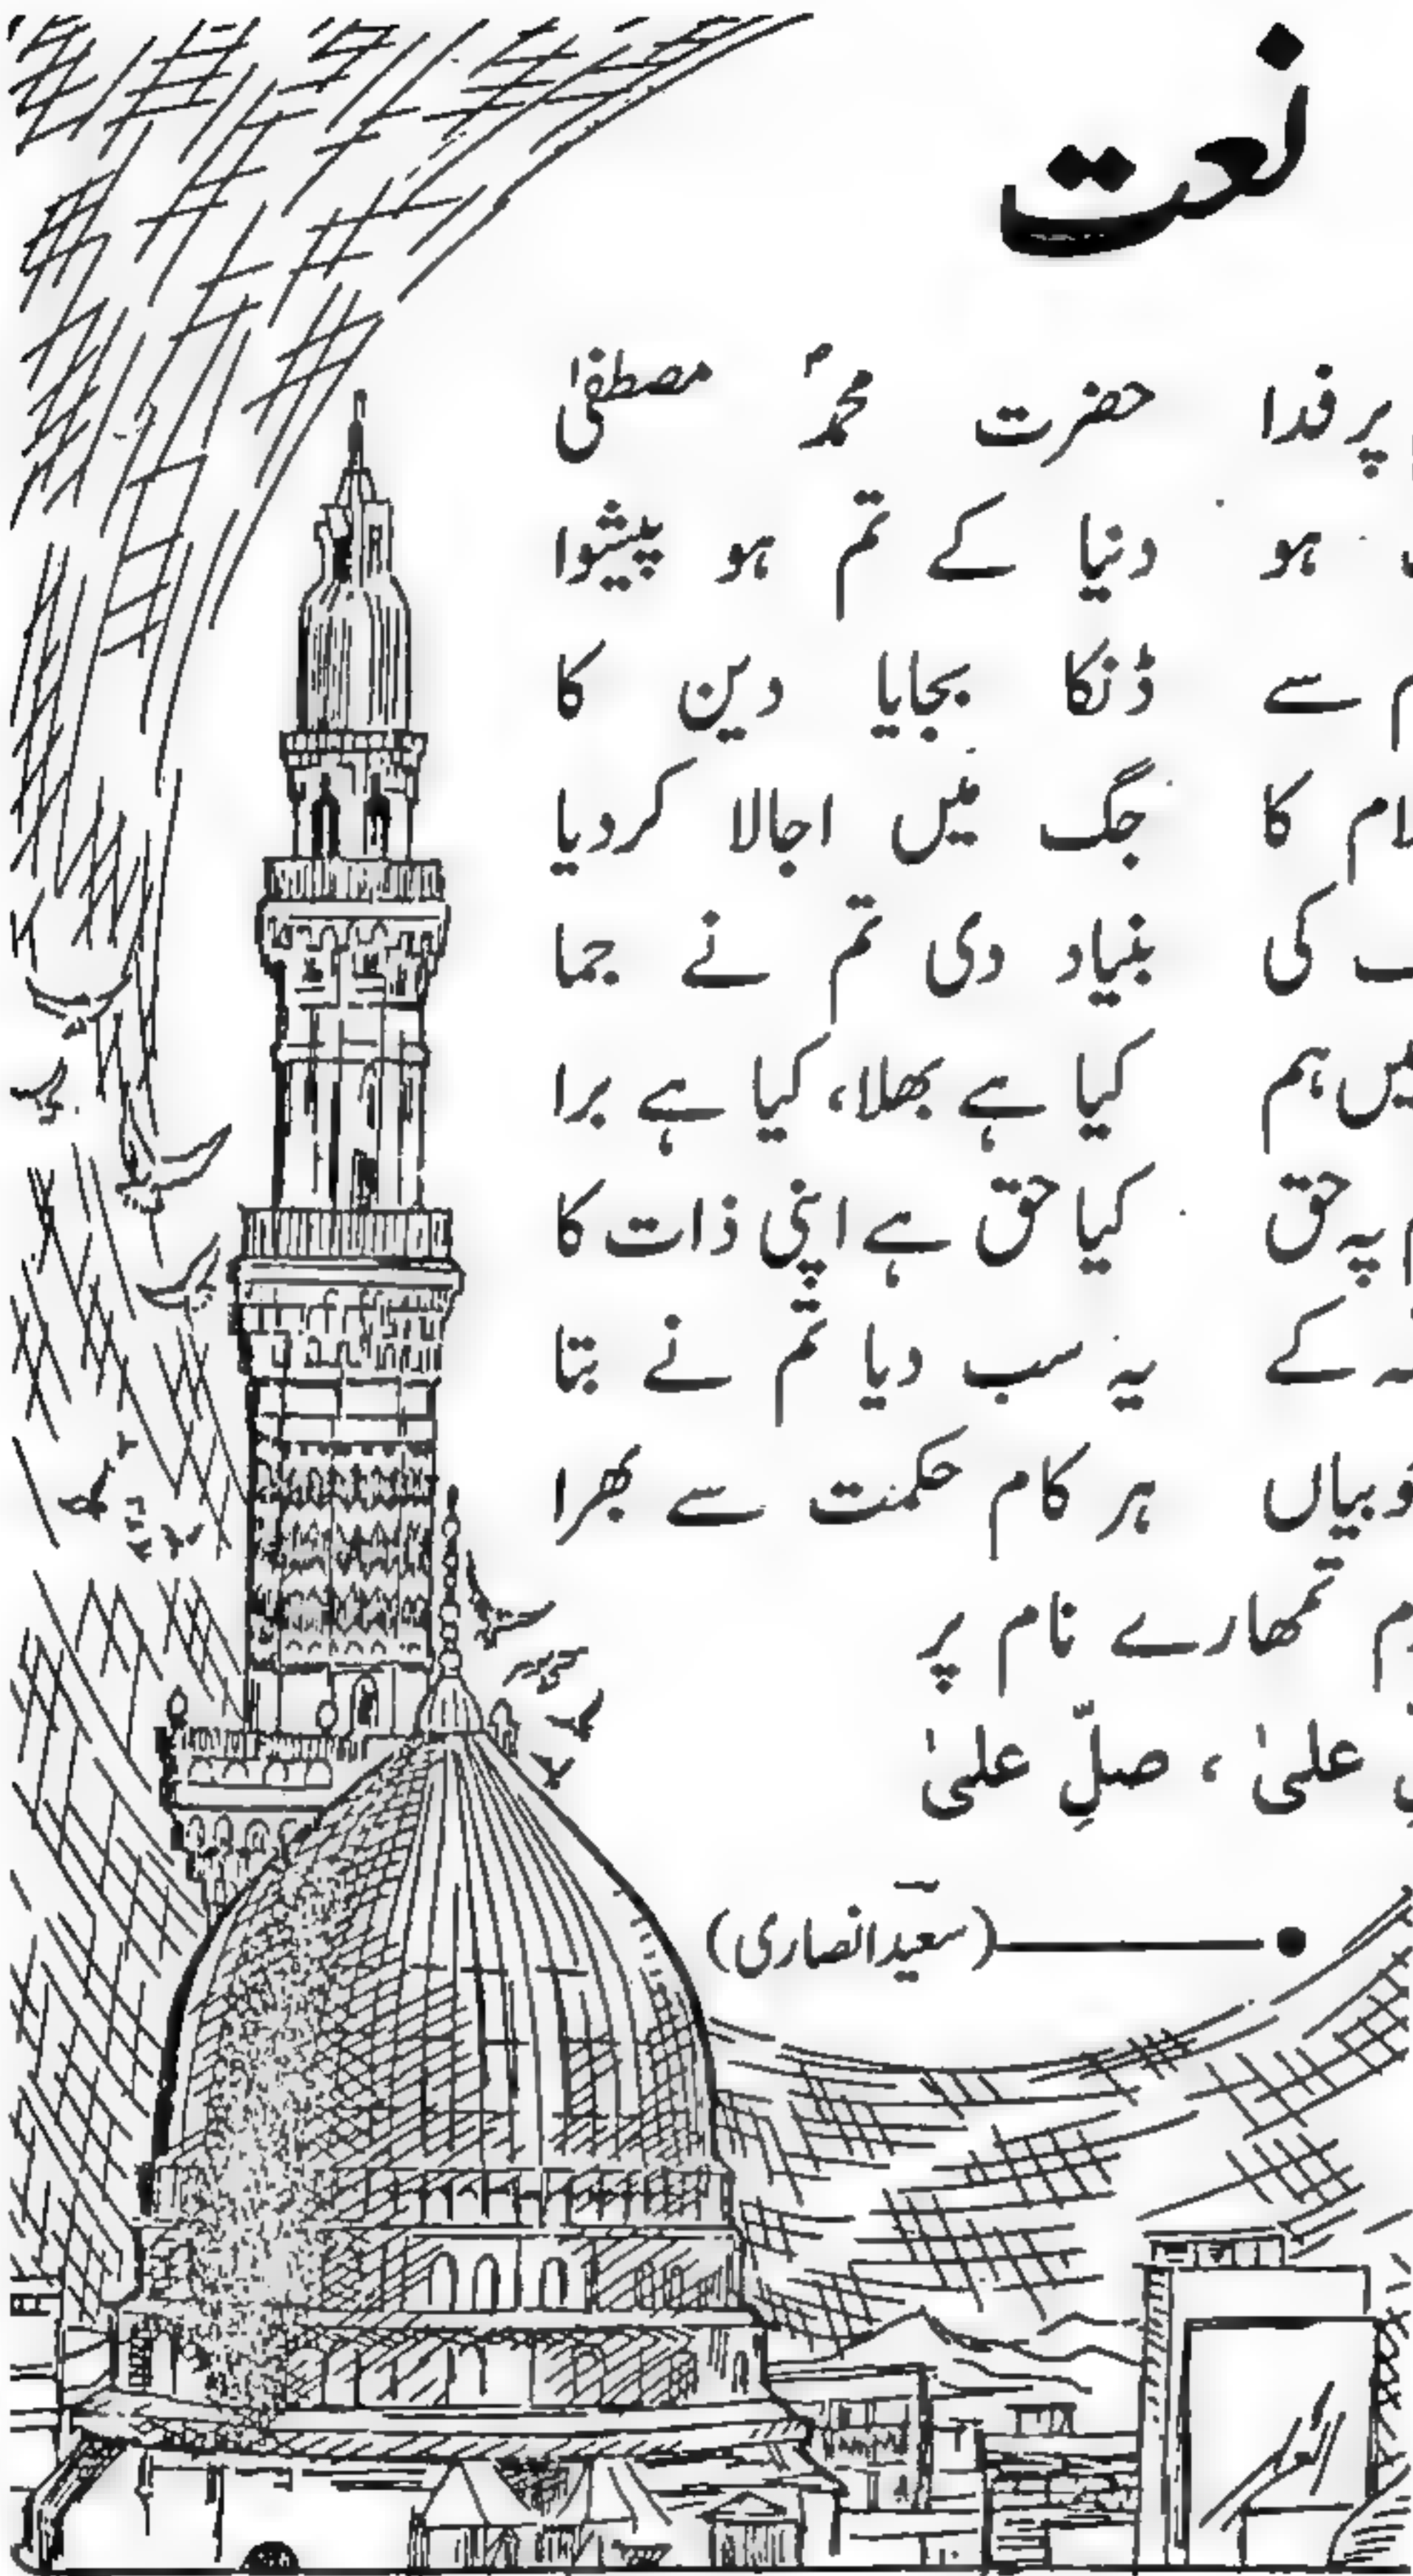 نعت
پر فدا حضرت محمدؐ مصطفیٰ
ہو دنیا کے تم ہو پیشوا
سے ڈنکا بجایا دین کا
کا جگ میں اجالا کردیا
کی بنیاد دی تم نے جما
ہم کیا ہے بھلا، کیا ہے برا
پہ حق کیا حق ہے اپنی ذات کا
کے یہ سب دیا تم نے بتا
ہر کام حکمت سے بھرا
تمھارے نام پر
علیٰ ، صلِّ علیٰ
(سعیدؔ انصاری)